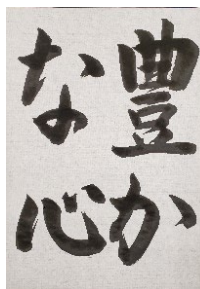 豊か
な心